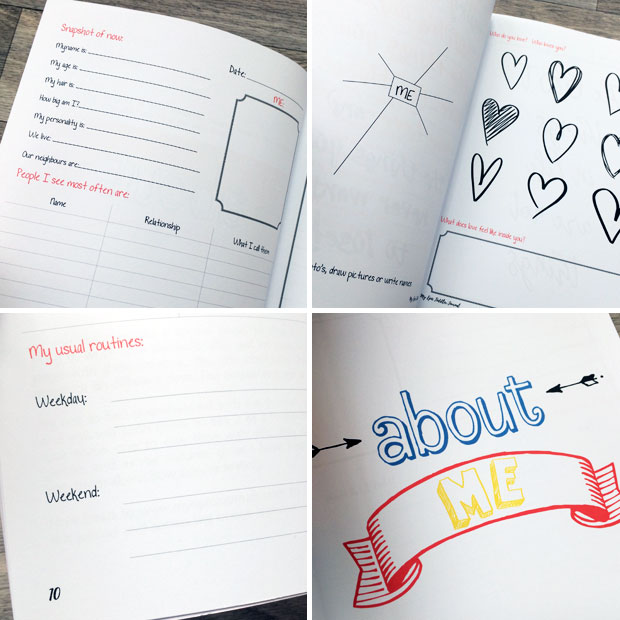 Snapshot of now:
Date:
My name is:
My age is:
My hair is:
How big am I?
My personality is:
We live:
Our neighbours are:
ME
People I see most often are:
Name
Relationship
What I call them
ME
to's, draw pictures or write names
Who do you love? Who loves you?
What does love feel like inside you?
My usual routines:
Weekday:
Weekend:
10
about
ME